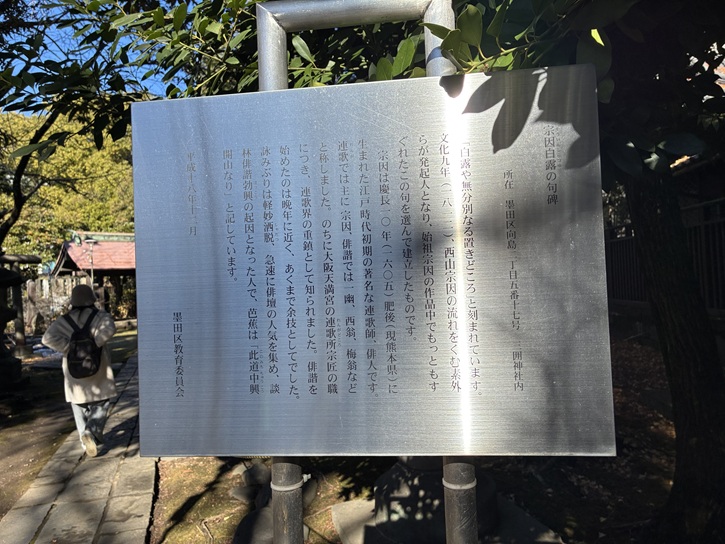 宗因白露の句碑
所在 墨田区向島二丁目五番十七号 三囲神社内
「白露や無分別なる置きどころ」と刻まれています。
文化九年(一八一二)、西山宗因の流れをくむ素外
らが発起人となり、始祖宗因の作品中でもっともす
ぐれたこの句を選んで建立したものです。
宗因は慶長一〇年(一六〇五)肥後(現熊本県)に
生まれた江戸時代初期の著名な連歌師、俳人です。
連歌では主に宗因、俳諧では一幽、西翁、梅翁など
と称しました。のちに大阪天満宮の連歌所宗匠の職
につき、連歌界の重鎮として知られました。俳諧を
始めたのは晩年に近く、あくまで余技としてでした。
詠みぶりは軽妙洒脱、急速に俳壇の人気を集め、談
林俳諧勃興の起因となった人で、芭蕉は「此道中興
開山なり」と記しています。
平成十八年十二月
墨田区教育委員会